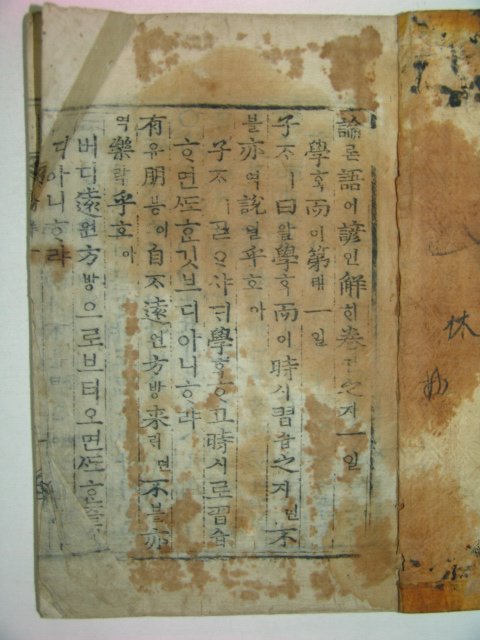 論론語어諺언解ᄒᆡ卷권之지一일
學ᄒᆞᆨ而이第뎨一일
子ᄌᆞㅣ曰왈學ᄒᆞᆨ而이時시習습之지면不
블亦역說열乎호아
子ᄌᆞㅣᄀᆞᆯᄋᆞ샤ᄃᆡ學ᄒᆞᆨᄒᆞ고時시로習습
ᄒᆞ면ᄯᅩᄒᆞᆫ깃브디아니ᄒᆞ랴
○有유朋붕이自ᄌᆞ遠원方방來ᄅᆡ면不블亦
역樂락乎호아
버디遠원方방으로브터오면ᄯᅩᄒᆞᆫ즐
디아니ᄒᆞ랴